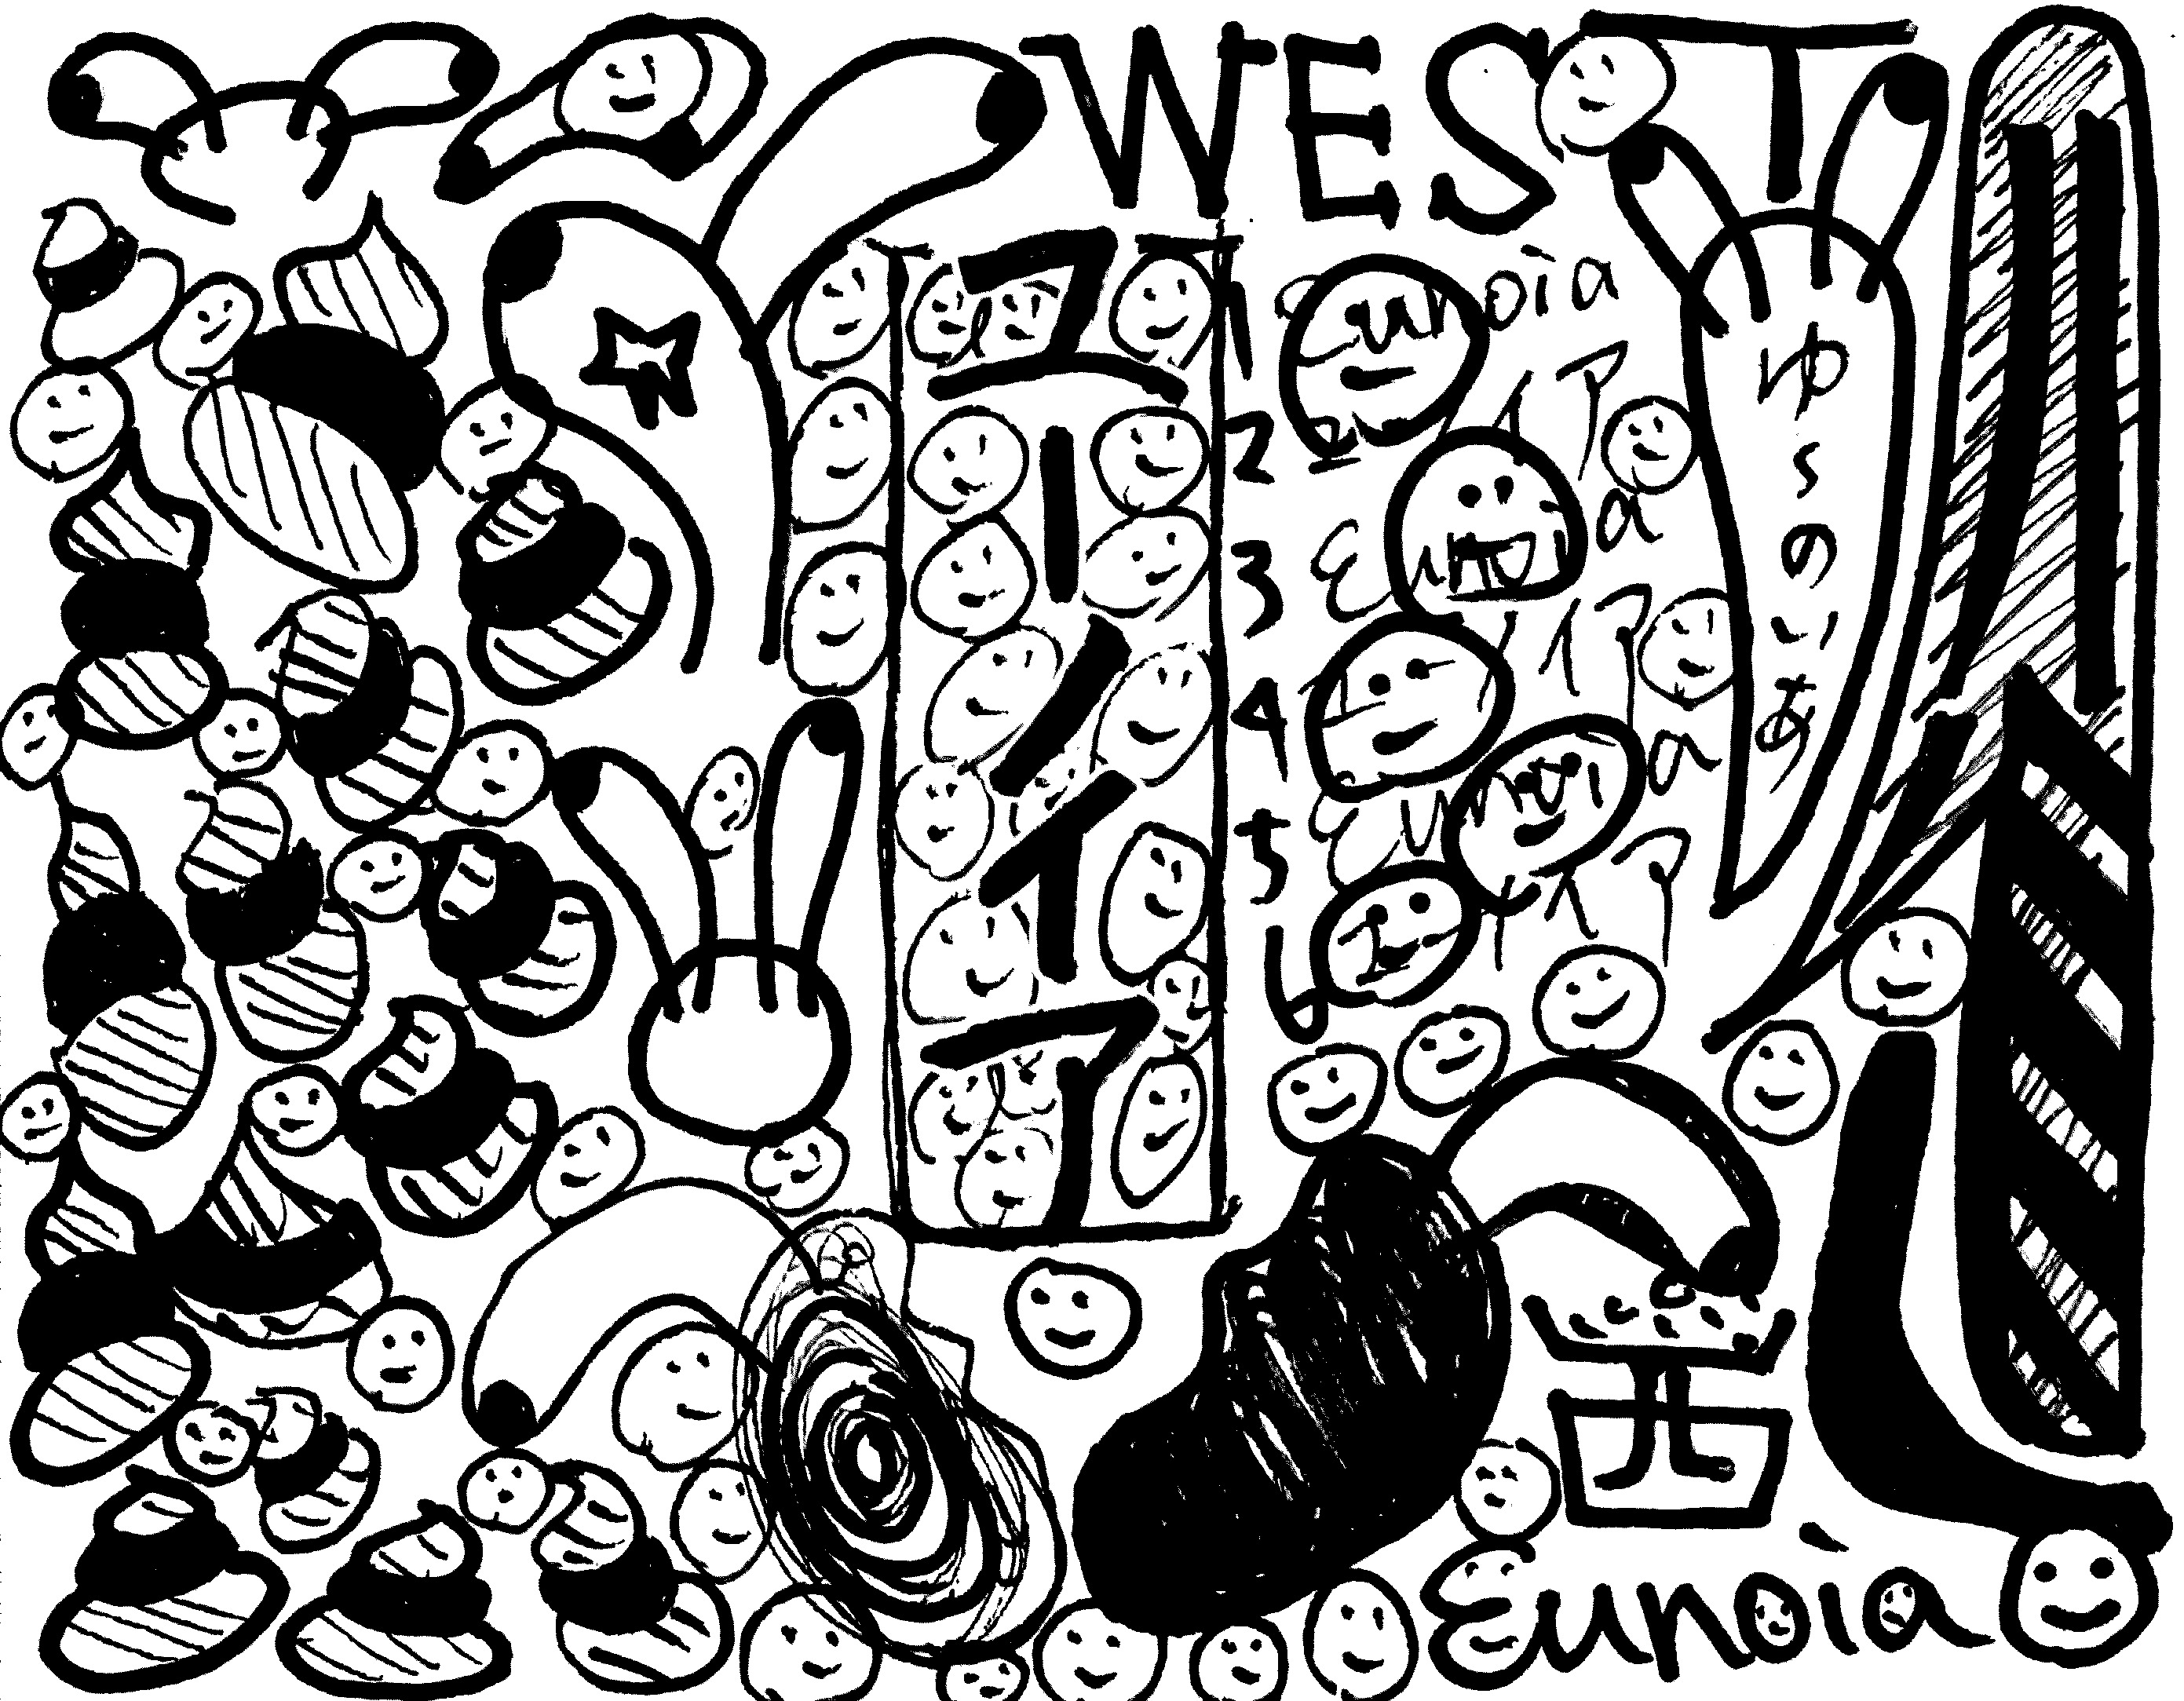 WEST
ユーノイア
1 Eunoia
2 ユーノイア
3 Eunoia
4 ユーノイア
5 Eunoia
6 ユーノイア
ゆうのいあ
西
Eunoia